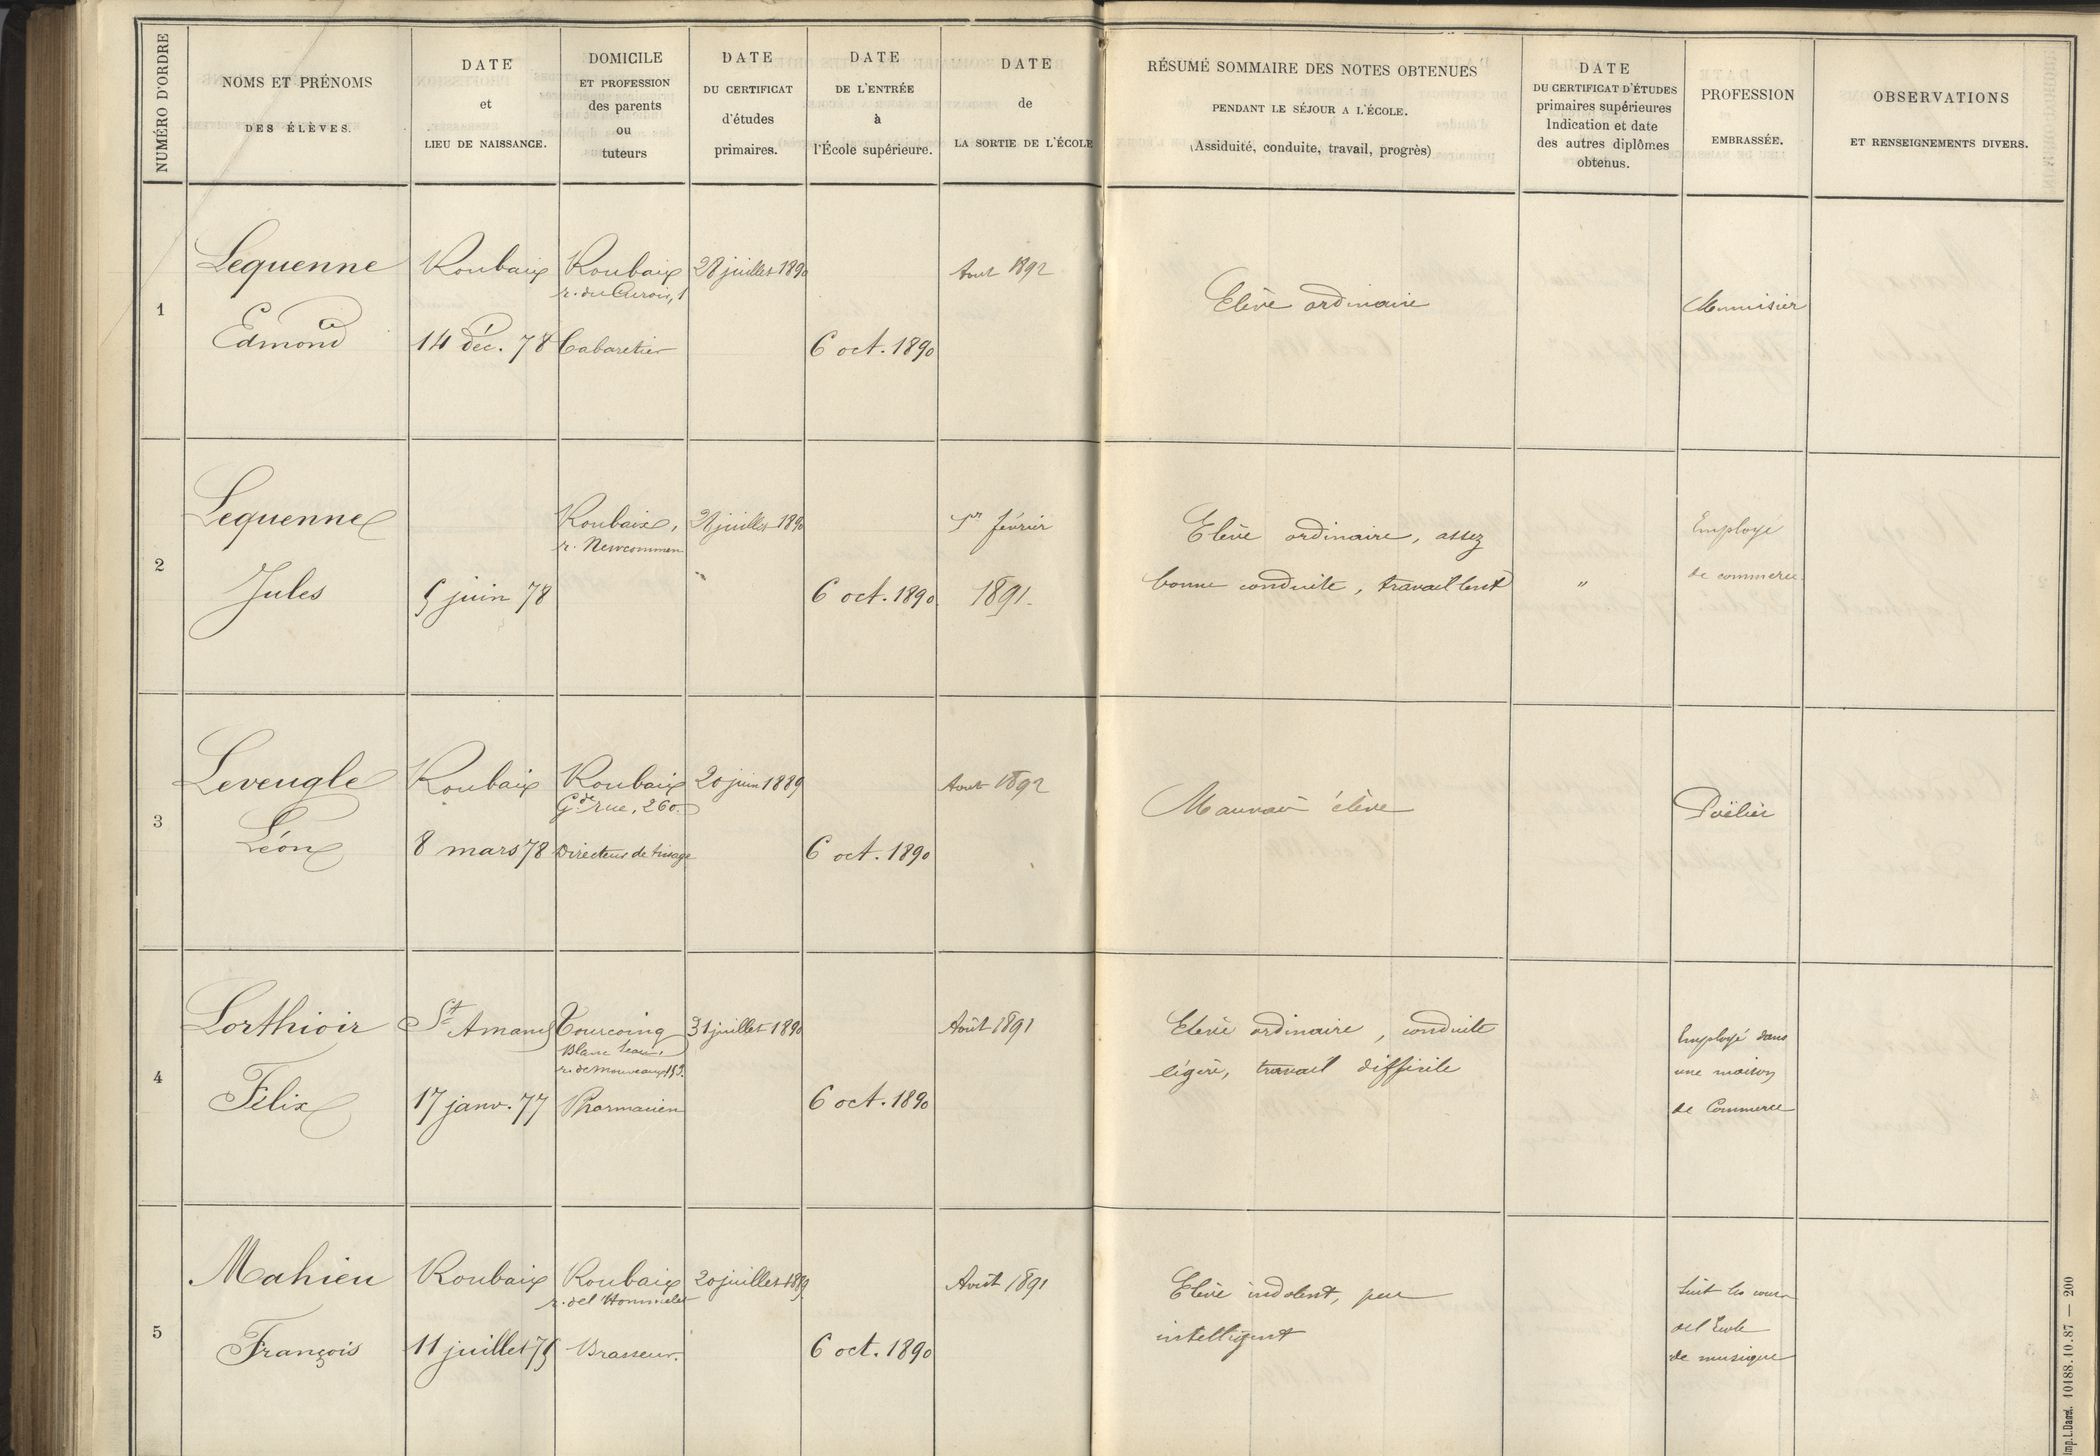 NUMÉRO D'ORDRE
NOMS ET PRÉNOMS
DES ÉLÈVES.
DATE
et
LIEU DE NAISSANCE.
DOMICILE
ET PROFESSION
des parents
ou
tuteurs
DATE
DU CERTIFICAT
d'études
primaires.
DATE
DE L'ENTRÉE
à
l'École supérieure.
DATE
de
LA SORTIE DE L'ÉCOLE
RÉSUMÉ SOMMAIRE DES NOTES OBTENUES
PENDANT LE SÉJOUR A L'ÉCOLE.
(Assiduité, conduite, travail, progrès)
DATE
DU CERTIFICAT D'ÉTUDES
primaires supérieures
Indication et date
des autres diplômes
obtenus.
PROFESSION
EMBRASSÉE.
OBSERVATIONS
ET RENSEIGNEMENTS DIVERS.
1
Lequenne
Edmond
Roubaix
14 déc. 78
Roubaix
r. du Curoir, 1
Cabaretier
28 juillet 1890
6 oct. 1890
Aout 1892
Elève ordinaire
Menuisier
2
Lequenne
Jules
5 juin 78
Roubaix,
r. Newcommen
28 juillet 1890
6 oct. 1890
1er février
1891.
Elève ordinaire, assez
bonne conduite, travail lent
"
Employé
de commerce
3
Leveugle
Léon
Roubaix
8 mars 78
Roubaix
Gde rue, 260.
Directeur de tissage
20 juin 1889
6 oct. 1890
Aout 1892
Mauvais élève
Poëlier
4
Lorthioir
Félix
St Amand
17 janv. 77
Tourcoing
Blanc Seau,
r. de Mouveaux 159.
Pharmacien
31 juillet 1890
6 oct. 1890
Août 1891
Elève ordinaire, conduite
légère, travail difficile
Employé dans
une maison
de Commerce
5
Mahieu
François
Roubaix
11 juillet 75
Roubaix
r. de l'Hommelet
Brasseur.
20 juillet 1889
6 oct. 1890
Août 1891
Elève indolent, peu
intelligent
Suit les cours
de l'Ecole
de musique
Imp. L. Danel. 10188.10.87 — 200